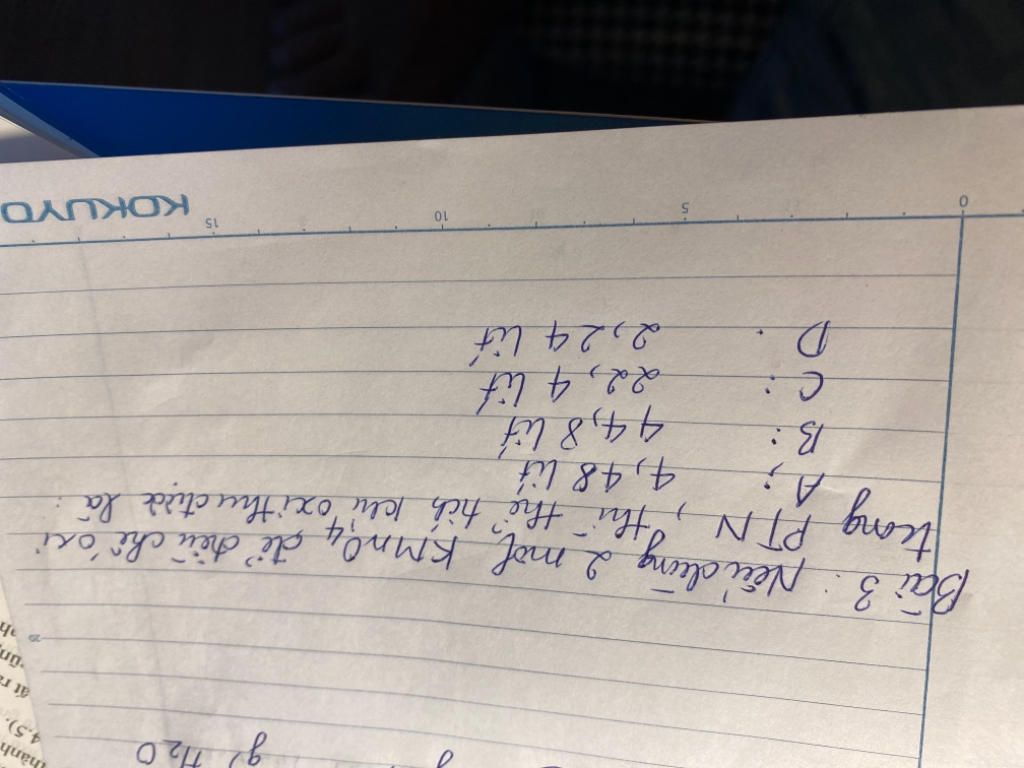 g) H₂O
Bài 3: Nếu dùng 2 mol KMnO₄ để điều chế oxi
trong PTN, thì thể tích khí oxi thu được là:
A: 4,48 lít
B: 44,8 lít
C: 22,4 lít
D. 2,24 lít
0 5 10 15
KOKUYO